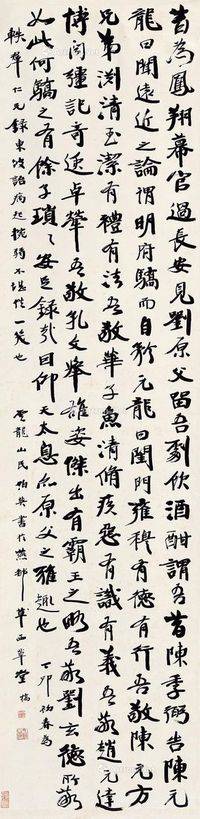 昔為鳳翔幕官過長安見劉原父留吾劇飲酒酣謂吾昔陳季弼告陳元
龍曰聞遠近之論謂明府驕而自矜元龍曰閨門雍穆有德有行吾敬陳元方
兄弟淵清玉潔有禮有法吾敬華子魚清脩疾惡有識有義吾敬趙元達
博聞彊記奇逸卓犖吾敬孔文舉雄姿傑出有霸王之略吾敬劉玄德所敬
如此何驕之有餘子瑣〻安足錄哉因仰天太息亦原父之雅趣也 丁卯初春為
軼羣仁兄錄東坡語病起腕弱不堪供一笑也 雲龍山民伯英書於燕都 西草堂